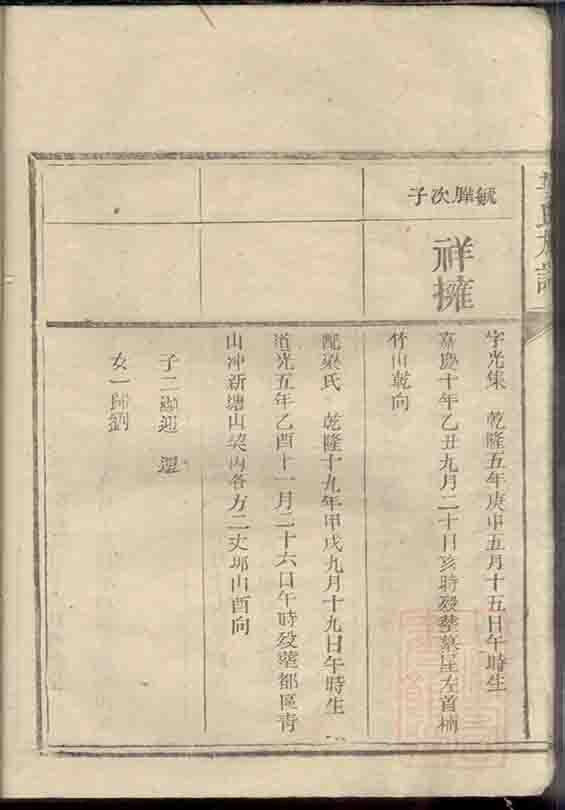 氏族譜
毓次子
祥擁
字光集 乾隆五年庚申五月十五日午時生
嘉慶十年乙丑九月二十日亥時歿葬左首楠
竹山乾向
配梁氏 乾隆十九年甲戌九月十九日午時生
道光五年乙酉十一月二十六日午時歿葬都區青
山冲新塘山契內各方二丈邱山酉向
子二迎
女一歸劉